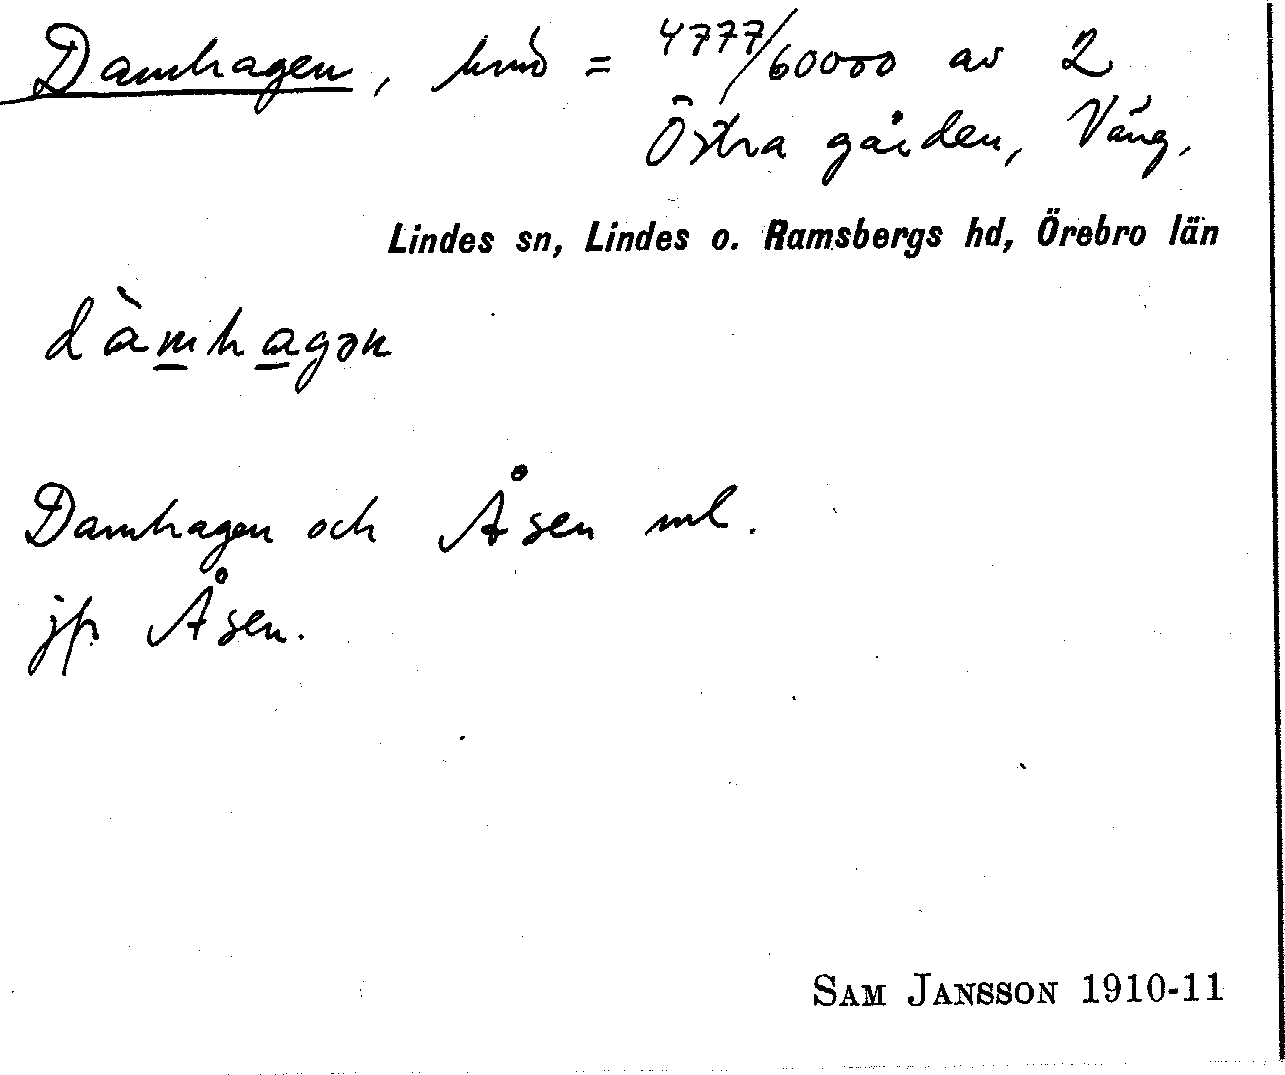 Damhagen, hmd = 4777/60000 av 2
Östra gården, Vång.
Lindes sn, Lindes o. Ramsbergs hd, Örebro län
dàmhagən
Damhagen och Åsen ml.
jfr Åsen.
SAM JANSSON 1910-11